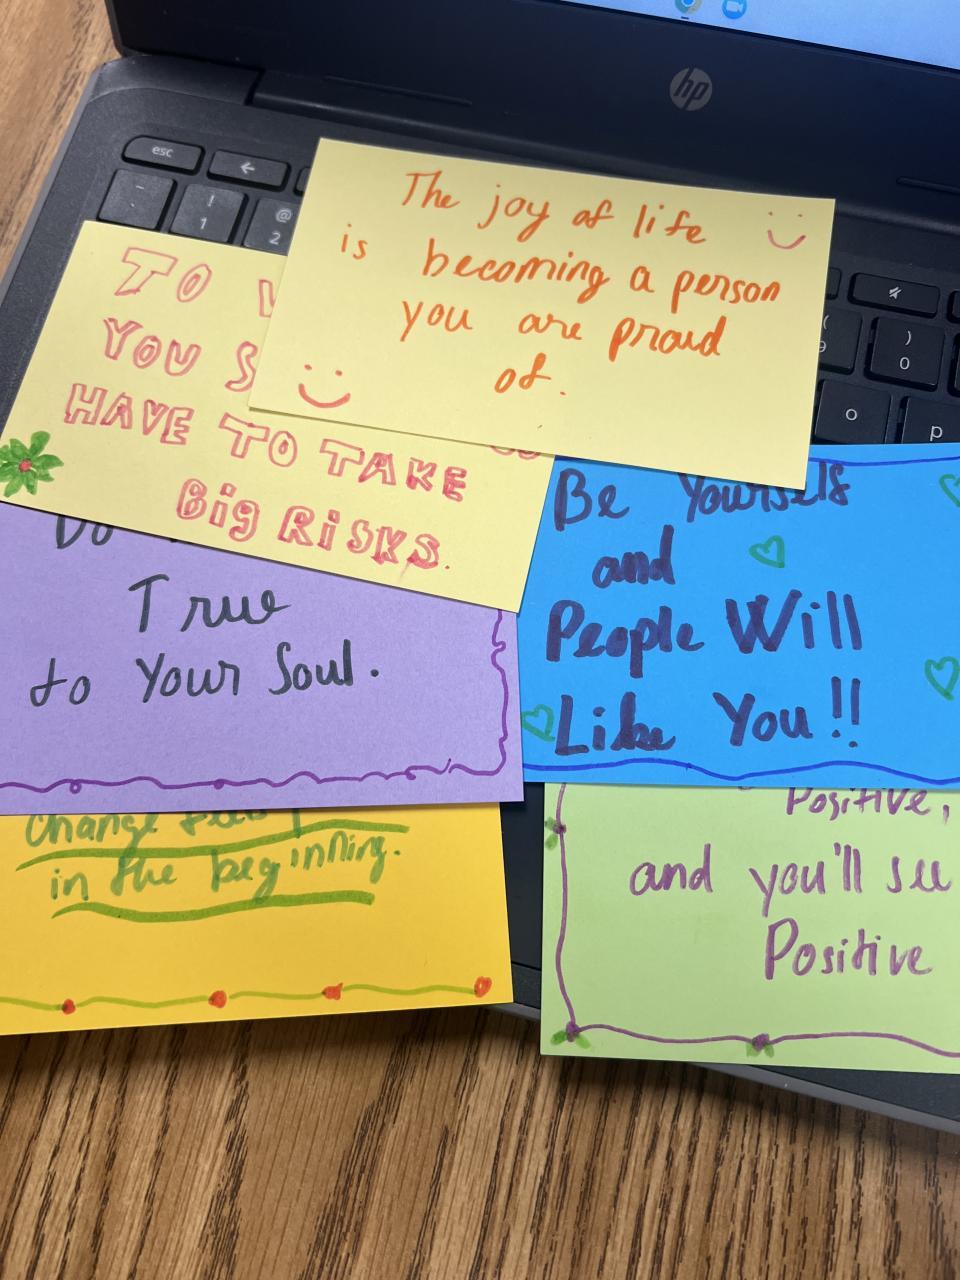 hp
esc
!
1
@
2
)
0
9
o
p
The joy of life
is becoming a person
you are proud
of.
TO
YOU S
HAVE TO TAKE
Big RiSKS.
True
to Your Soul.
Be Yourself
and
People Will
Like You!!
change
in the beginning.
Positive,
and you'll see
Positive